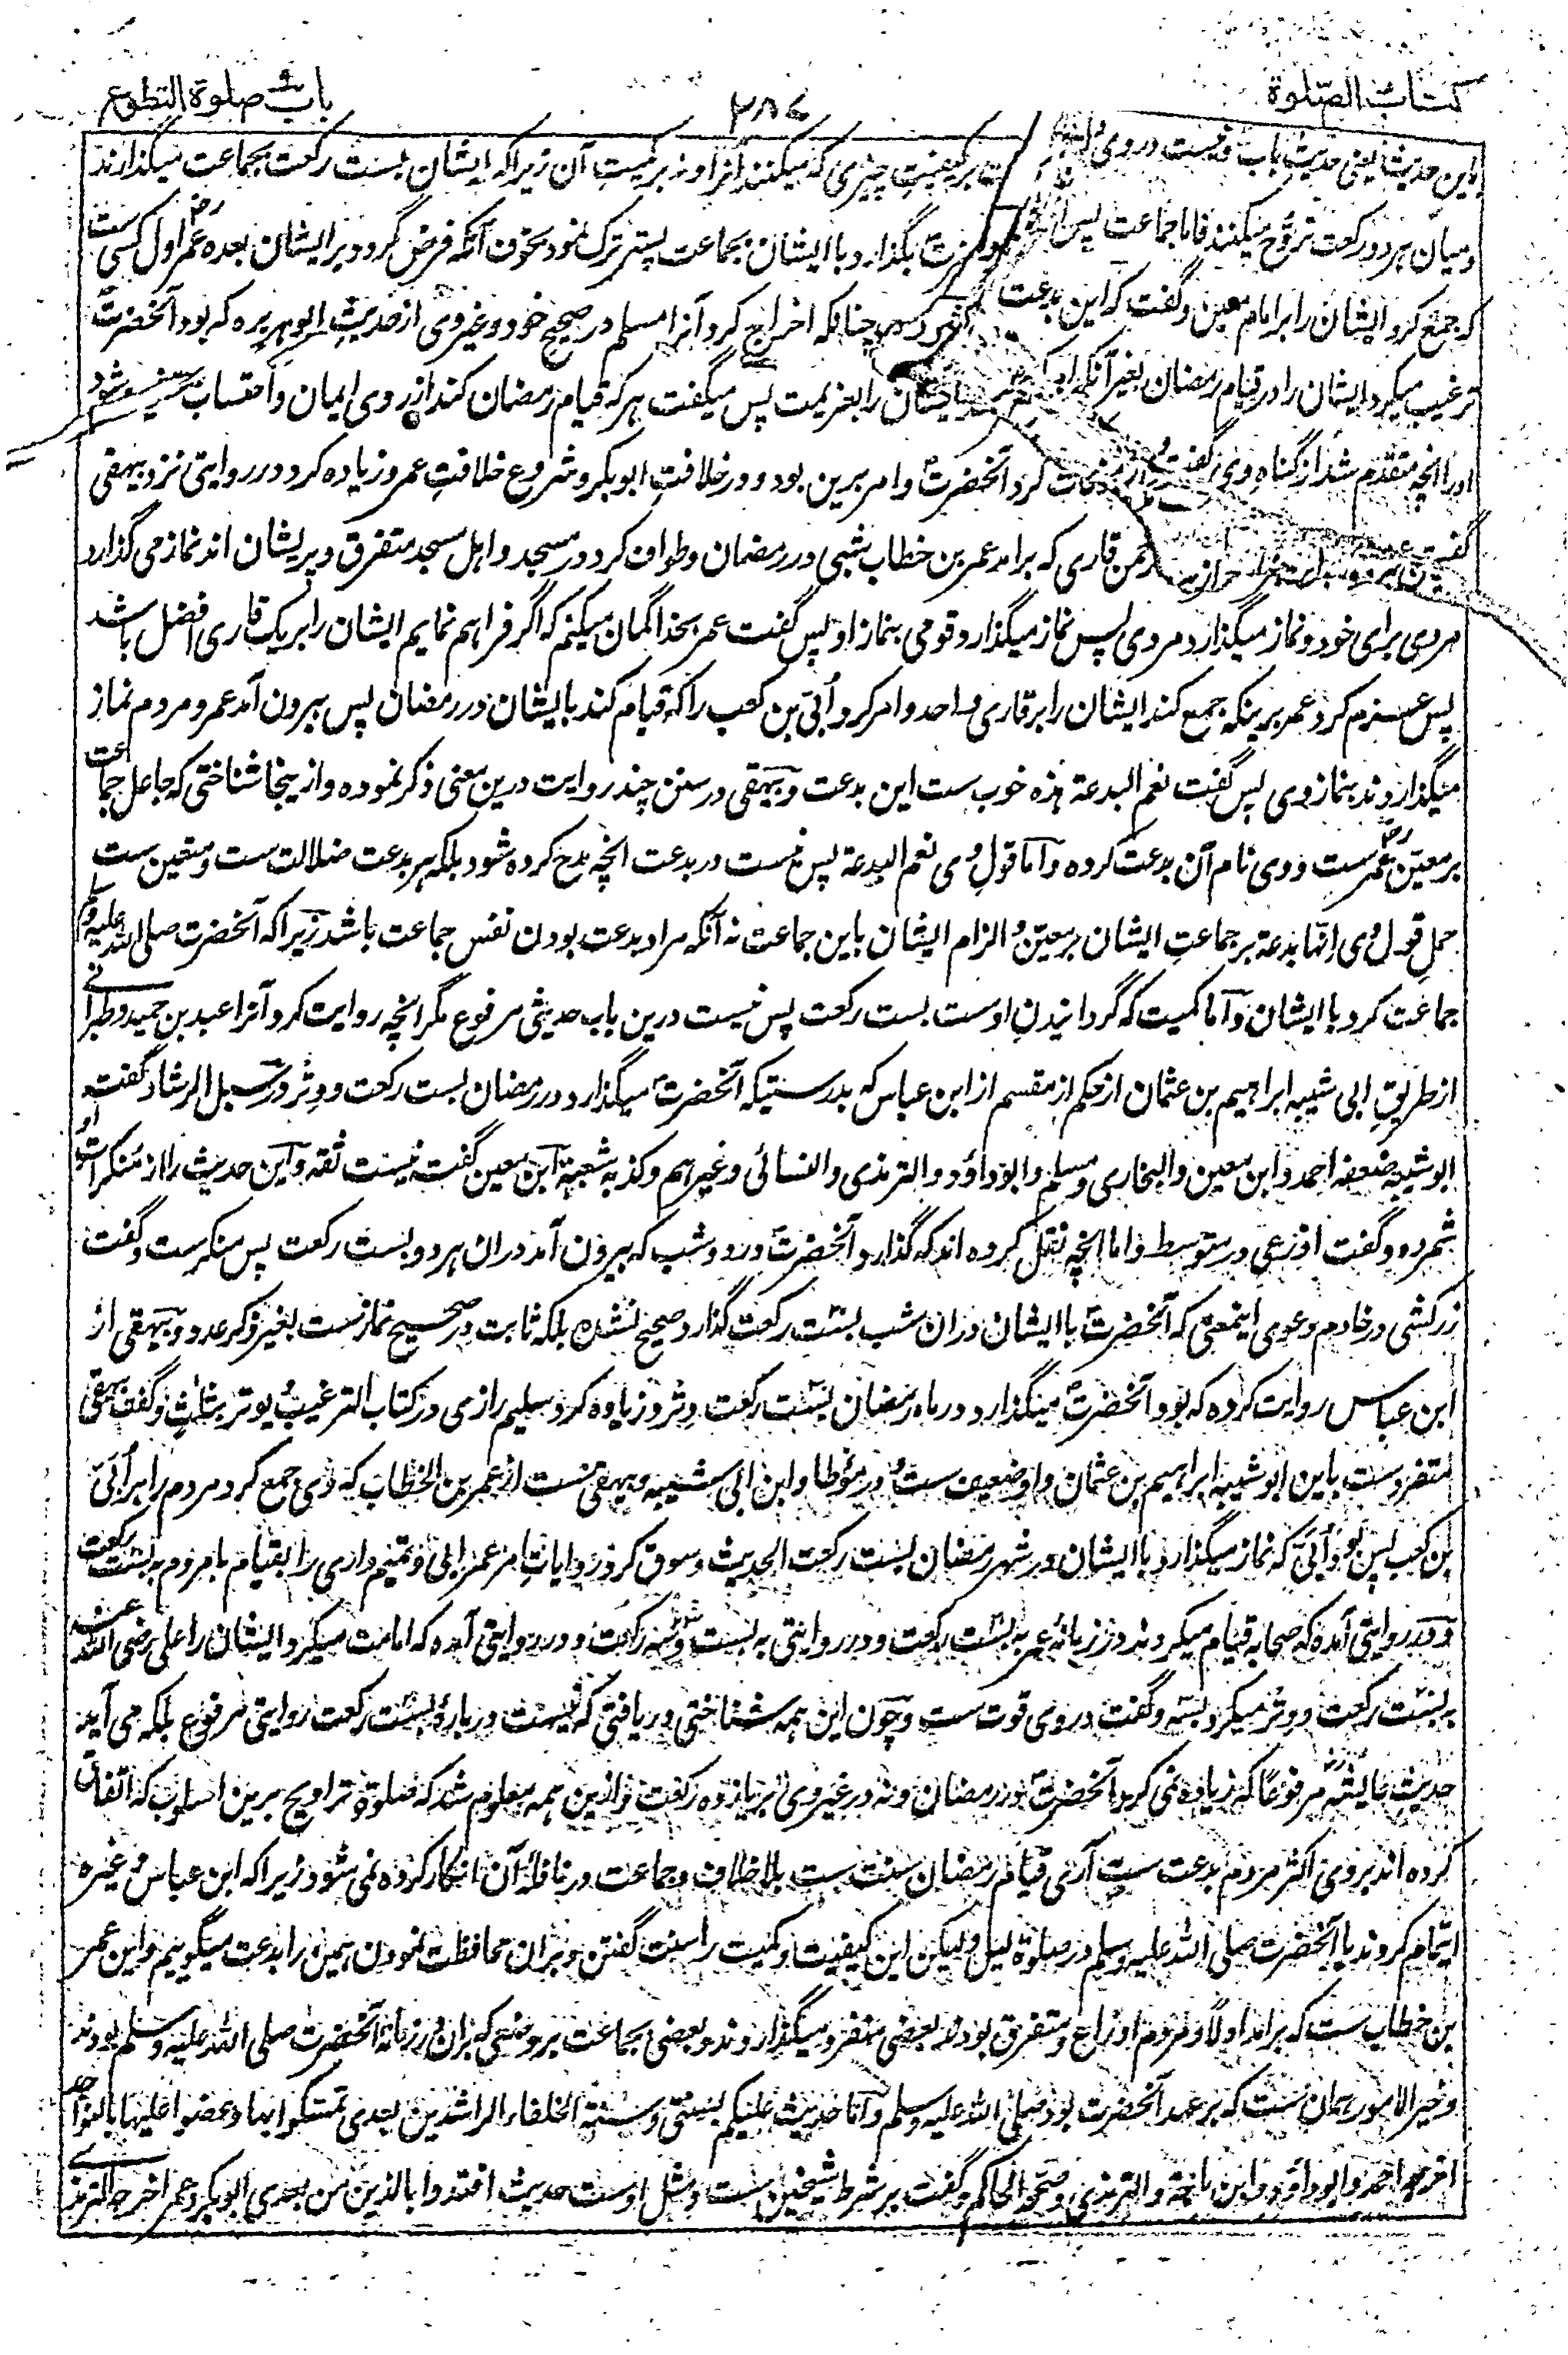 کتاب الصلوة
۲۸۷
باب صلوة التطوع
باین حدیث یعنی حدیث باب نیست در وی بر کیفیت چیزی که میکنند آنرا و نه بر کمیت آن زیرا که ایشان بست رکعت بجماعت میگذارند
و میان هر دو رکعت تروح میکنند فاما جماعت پس بگذارد با ایشان بجماعت پستر ترک نمود بخوف آنکه فرض گردد بر ایشان بعده عمر رض اول کسی ست
که جمع کرد ایشان را بر امام معین و گفت که این بدعت چنانکه اخراج کرد آنرا مسلم در صحیح خود و غیر وی از حدیث ابو هریره که بود آنحضرت
ترغیب میکرد ایشان را در قیام رمضان بغیر آنکه ایشان را بعزیمت پس میگفت هر که قیام رمضان کند از روی ایمان و احتساب شود
اورا انچه متقدم شد از گناه وی گفت کرد آنحضرت و امر برین بود و در خلافت ابوبکر و شروع خلافت عمر و زیاده کرد در روایتی نزد بیهقی
گفت قاری که برآمد عمر بن خطاب شبی در رمضان و طواف کرد در مسجد و اهل مسجد متفرق و پریشان اند نماز می گذارد
مردی برای خود و نماز میگذارد مردی پس نماز میگذارد قومی بنماز او پس گفت عمر بخدا گمان میکنم که اگر فراهم نمایم ایشان را بر یک قاری افضل باشد
پس عزم کرد عمر برینکه جمع کند ایشان را بر قاری واحد و امر کرد اُبی بن کعب را که قیام کند با ایشان در رمضان پس بیرون آمد عمر و مردم نماز
میگذاردند بنماز وی پس گفت نعم البدعة هذه خوب ست این بدعت و بیهقی در سنن چند روایت درین معنی ذکر نموده و ازینجا شناختی که جاعل جماعت
بر معین عمر رض ست و وی نام آن بدعت کرده و اما قول وی نعم البدعة پس نیست در بدعت انچه مدح کرده شود بلکه هر بدعت ضلالت ست و متعین ست
حمل قول وی انها بدعة بر جماعت ایشان بر معین و الزام ایشان باین جماعت نه آنکه مراد بدعت بودن نفس جماعت باشد زیرا که آنحضرت صلی الله علیه وسلم
جماعت کرد با ایشان و اما کمیت که گردانیدن اوست بست رکعت پس نیست درین باب حدیثی مرفوع مگر انچه روایت کرد آنرا عبد بن حمید و طبرانی
از طریق ابی شیبه ابراهیم بن عثمان از حکم از مقسم از ابن عباس که بدرستیکه آنحضرت میگذارد در رمضان بست رکعت و وتر در سبل الرشاد گفته
ابو شیبه ضعفه احمد و ابن معین والبخاری و مسلم و ابو داؤد والترمذی والنسائی و غیرهم و کذبه شعبة ابن معین گفت نیست ثقه و این حدیث را از منکرات او
شمرده و گفت اذرعی در متوسط و اما انچه نقل کرده اند که گذارد آنحضرت در دو شب که بیرون آمد دران هر دو بست رکعت پس منکر ست و گفت
زرکشی در خادم دعوی اینمعنی که آنحضرت با ایشان دران شب بست رکعت گذارد صحیح نشده بلکه ثابت در صحیح نماز ست بغیر ذکر عدد و بیهقی از
ابن عباس روایت کرده که بود آنحضرت میگذارد در ماه رمضان بست رکعت و وتر و زیاده کرد سلیم رازی در کتاب الترغیب و یوتر بثلث و گفت بیهقی
متفرد ست باین ابو شیبه ابراهیم بن عثمان و او ضعیف ست و در موطا و ابن ابی شیبه و بیهقی ست از عمر بن الخطاب که وی جمع کرد مردم را بر اُبَیّ
بن کعب پس بود اُبَیّ که نماز میگذارد با ایشان در شهر رمضان بست رکعت الحدیث و سوق کرد روایات امر عمر ابی و تمیم داری را بقیام با مردم به بست رکعت
و در روایتی آمده که صحابه قیام میکردند در زمانه عمر به بست رکعت و در روایتی به بست و سه رکعت و در روایتی آمده که امامت میکرد ایشان را علی رضی الله عنه
به بست رکعت و وتر میکرد بسه و گفت در وی قوت ست و چون این همه شناختی دریافتی که نیست در باره بست رکعت روایتی مرفوع بلکه می آید
حدیث عایشه رض مرفوعًا که زیاده نمی کرد آنحضرت در رمضان و نه در غیر وی بر یازده رکعت و ازین همه معلوم شد که صلوة تراویح برین اسلوب که اتفاق
کرده اند بروی اکثر مردم بدعت ست آری قیام رمضان سنت ست بلا خلاف و جماعت در نافله آن انکار کرده نمی شود زیرا که ابن عباس و غیره
ایتمام کردند با آنحضرت صلی الله علیه وسلم در صلوة لیل ولیکن این کیفیت و کمیت را سنت گفتن و بران محافظت نمودن همین را بدعت میگوییم و این عمر
بن خطاب ست که برآمد اولًا و مردم اوزاع و متفرق بودند بعضی منفرد میگذاردند و بعضی بجماعت بر وضعی که بران در زمانه آنحضرت صلی الله علیه وسلم بودند
و خیر الامور همان ست که بر عهد آنحضرت بود صلی الله علیه وسلم و اما حدیث علیکم بسنتی و سنة الخلفاء الراشدین بعدی تمسکوا بها و عضوا علیها بالنواجذ
اخرجه احمد و ابو داؤد و ابن ماجة والترمذی و صححه الحاکم و گفت بر شرط شیخین ست و مثل اوست حدیث اقتدوا بالذین من بعدی ابو بکر و عمر اخرجه الترمذی